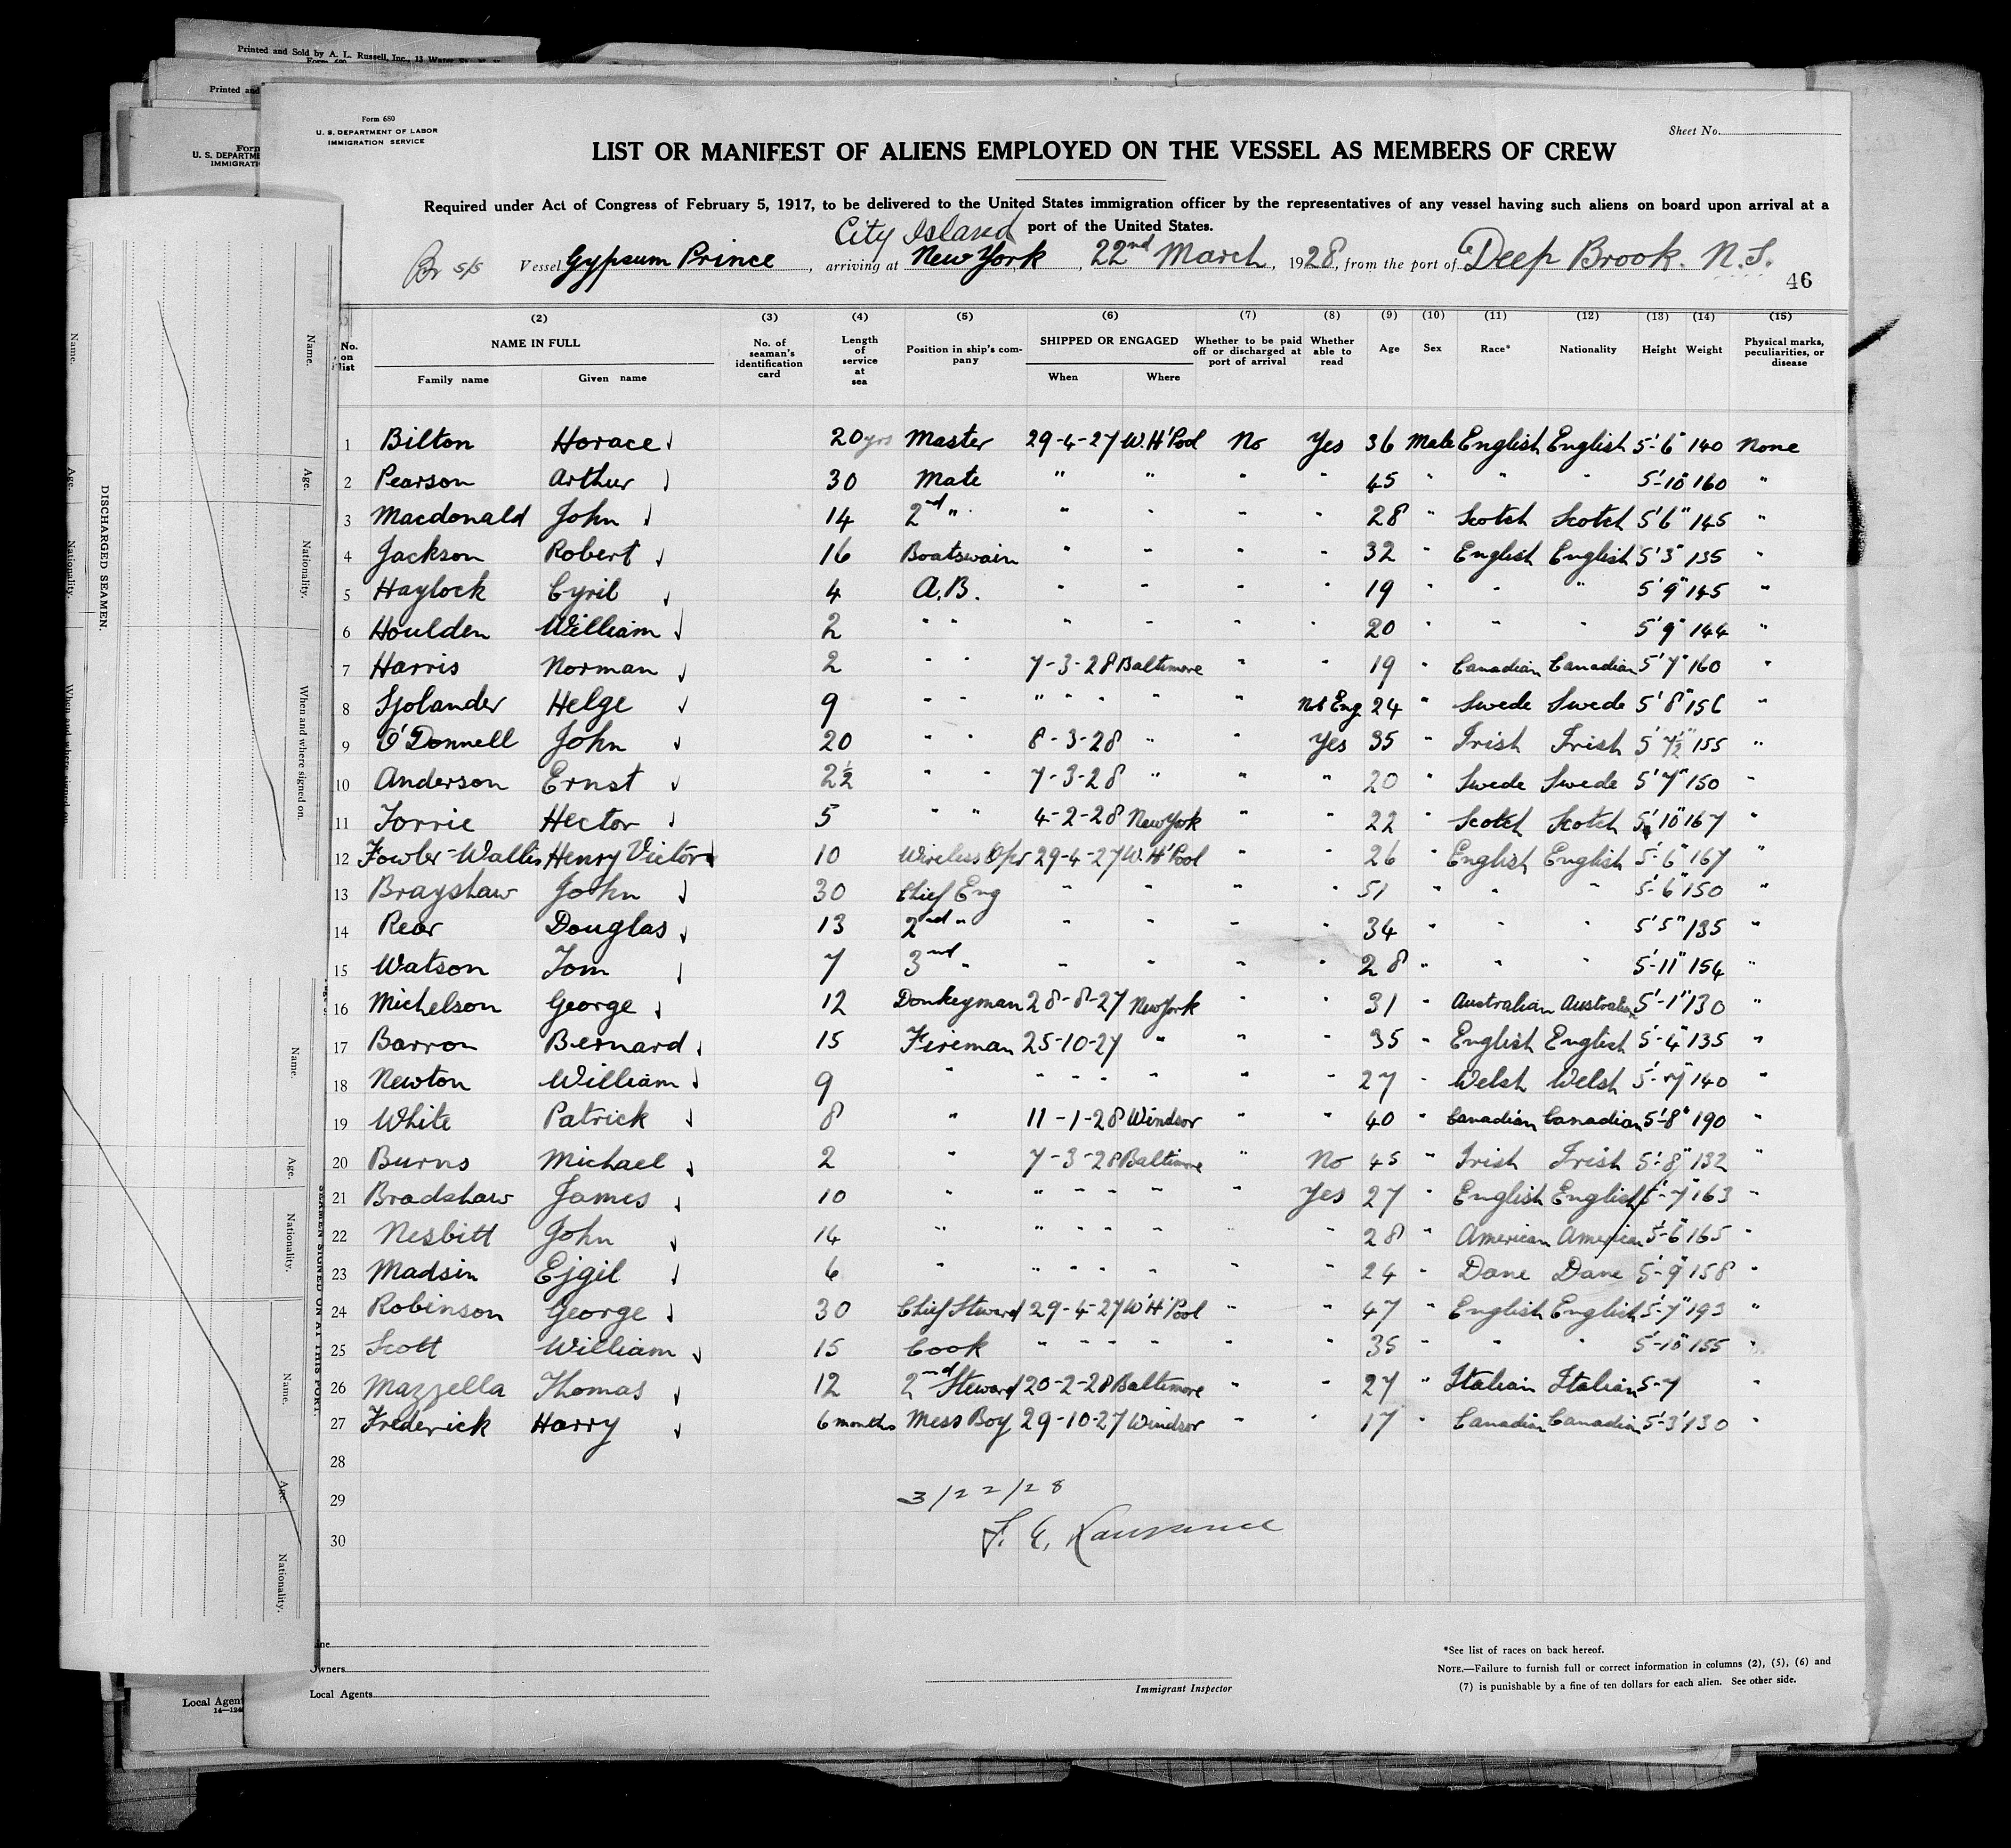 Printed and Sold by A. L. Russell, Inc., 13 Water
Form 680
Printed and
Form
U. S. DEPARTME
IMMIGRATI
Form 680
U. S. DEPARTMENT OF LABOR
IMMIGRATION SERVICE
Sheet No.
LIST OR MANIFEST OF ALIENS EMPLOYED ON THE VESSEL AS MEMBERS OF CREW
Required under Act of Congress of February 5, 1917, to be delivered to the United States immigration officer by the representatives of any vessel having such aliens on board upon arrival at a
port of the United States.
City Island
Br S/S Vessel Gypsum Prince, arriving at New York, 22nd March, 1928, from the port of Deep Brook. N.S.
46
(2) (3) (4) (5) (6) (7) (8) (9) (10) (11) (12) (13) (14) (15)
No. on list NAME IN FULL Family name Given name No. of seaman's identification card Length of service at sea Position in ship's company SHIPPED OR ENGAGED When Where Whether to be paid off or discharged at port of arrival Whether able to read Age Sex Race* Nationality Height Weight Physical marks, peculiarities, or disease
1 Bilton Horace 20 yrs Master 29-4-27 W. H'Pool No Yes 36 Male English English 5'-6" 140 None
2 Pearson Arthur 30 Mate " " " " 45 " " " 5'-10" 160 "
3 Macdonald John 14 2nd " " " " " 28 " Scotch Scotch 5'6" 145 "
4 Jackson Robert 16 Boatswain " " " " 32 " English English 5'3" 135 "
5 Haylock Cyril 4 A.B. " " " " 19 " " " 5'9" 145 "
6 Houlden William 2 " " " " " " 20 " " " 5'9" 144 "
7 Harris Norman 2 " " 7-3-28 Baltimore " " 19 " Canadian Canadian 5'7" 160 "
8 Sjolander Helge 9 " " " " " " " Not Eng 24 " Swede Swede 5'8" 156 "
9 O'Donnell John 20 " " 8-3-28 " " Yes 35 " Irish Irish 5'7½" 155 "
10 Anderson Ernst 2½ " " 7-3-28 " " " 20 " Swede Swede 5'7" 150 "
11 Torrie Hector 5 " " 4-2-28 New York " " 22 " Scotch Scotch 5'10" 167 "
12 Fowler-Wallis Henry Victor 10 Wireless Opr 29-4-27 W. H'Pool " " 26 " English English 5'-6" 167 "
13 Brayshaw John 30 Chief Eng " " " " 51 " " " 5'-6" 150 "
14 Rear Douglas 13 2nd " " " " " 34 " " " 5'5" 135 "
15 Watson Tom 7 3rd " " " " " 28 " " " 5'-11" 154 "
16 Michelson George 12 Donkeyman 28-8-27 New York " " 31 " Australian Australian 5'-1" 130 "
17 Barron Bernard 15 Fireman 25-10-27 " " " 35 " English English 5'-4" 135 "
18 Newton William 9 " " " " " " " 27 " Welsh Welsh 5'-7" 140 "
19 White Patrick 8 " 11-1-28 Windsor " " 40 " Canadian Canadian 5'-8" 190 "
20 Burns Michael 2 " 7-3-28 Baltimore " No 45 " Irish Irish 5'-8" 132 "
21 Bradshaw James 10 " " " " " " Yes 27 " English English 5'-7" 163 "
22 Nesbitt John 14 " " " " " " " 28 " American American 5'-6" 165 "
23 Madsin Ejgil 6 " " " " " " " 24 " Dane Dane 5'-9" 158 "
24 Robinson George 30 Chief Steward 29-4-27 W'H'Pool " " 47 " English English 5'-7" 193 "
25 Scott William 15 Cook " " " " " " 35 " " " 5'-10" 155 "
26 Mazzella Thomas 12 2nd Steward 20-2-28 Baltimore " " 27 " Italian Italian 5-7 "
27 Frederick Harry 6 months Mess Boy 29-10-27 Windsor " " 17 " Canadian Canadian 5'-3" 130 "
28
29
30
3/22/28
Line
Owners
Local Agents
Immigrant Inspector
*See list of races on back hereof.
NOTE.—Failure to furnish full or correct information in columns (2), (5), (6) and
(7) is punishable by a fine of ten dollars for each alien. See other side.
DISCHARGED SEAMEN.
Name.
Age.
Nationality.
When and where signed on.
Name.
Age.
Nationality.
When and where signed on.
SEAMEN SIGNED ON AT THIS PORT.
Name.
Age.
Nationality.
Name.
Age.
Nationality.
Local Agent